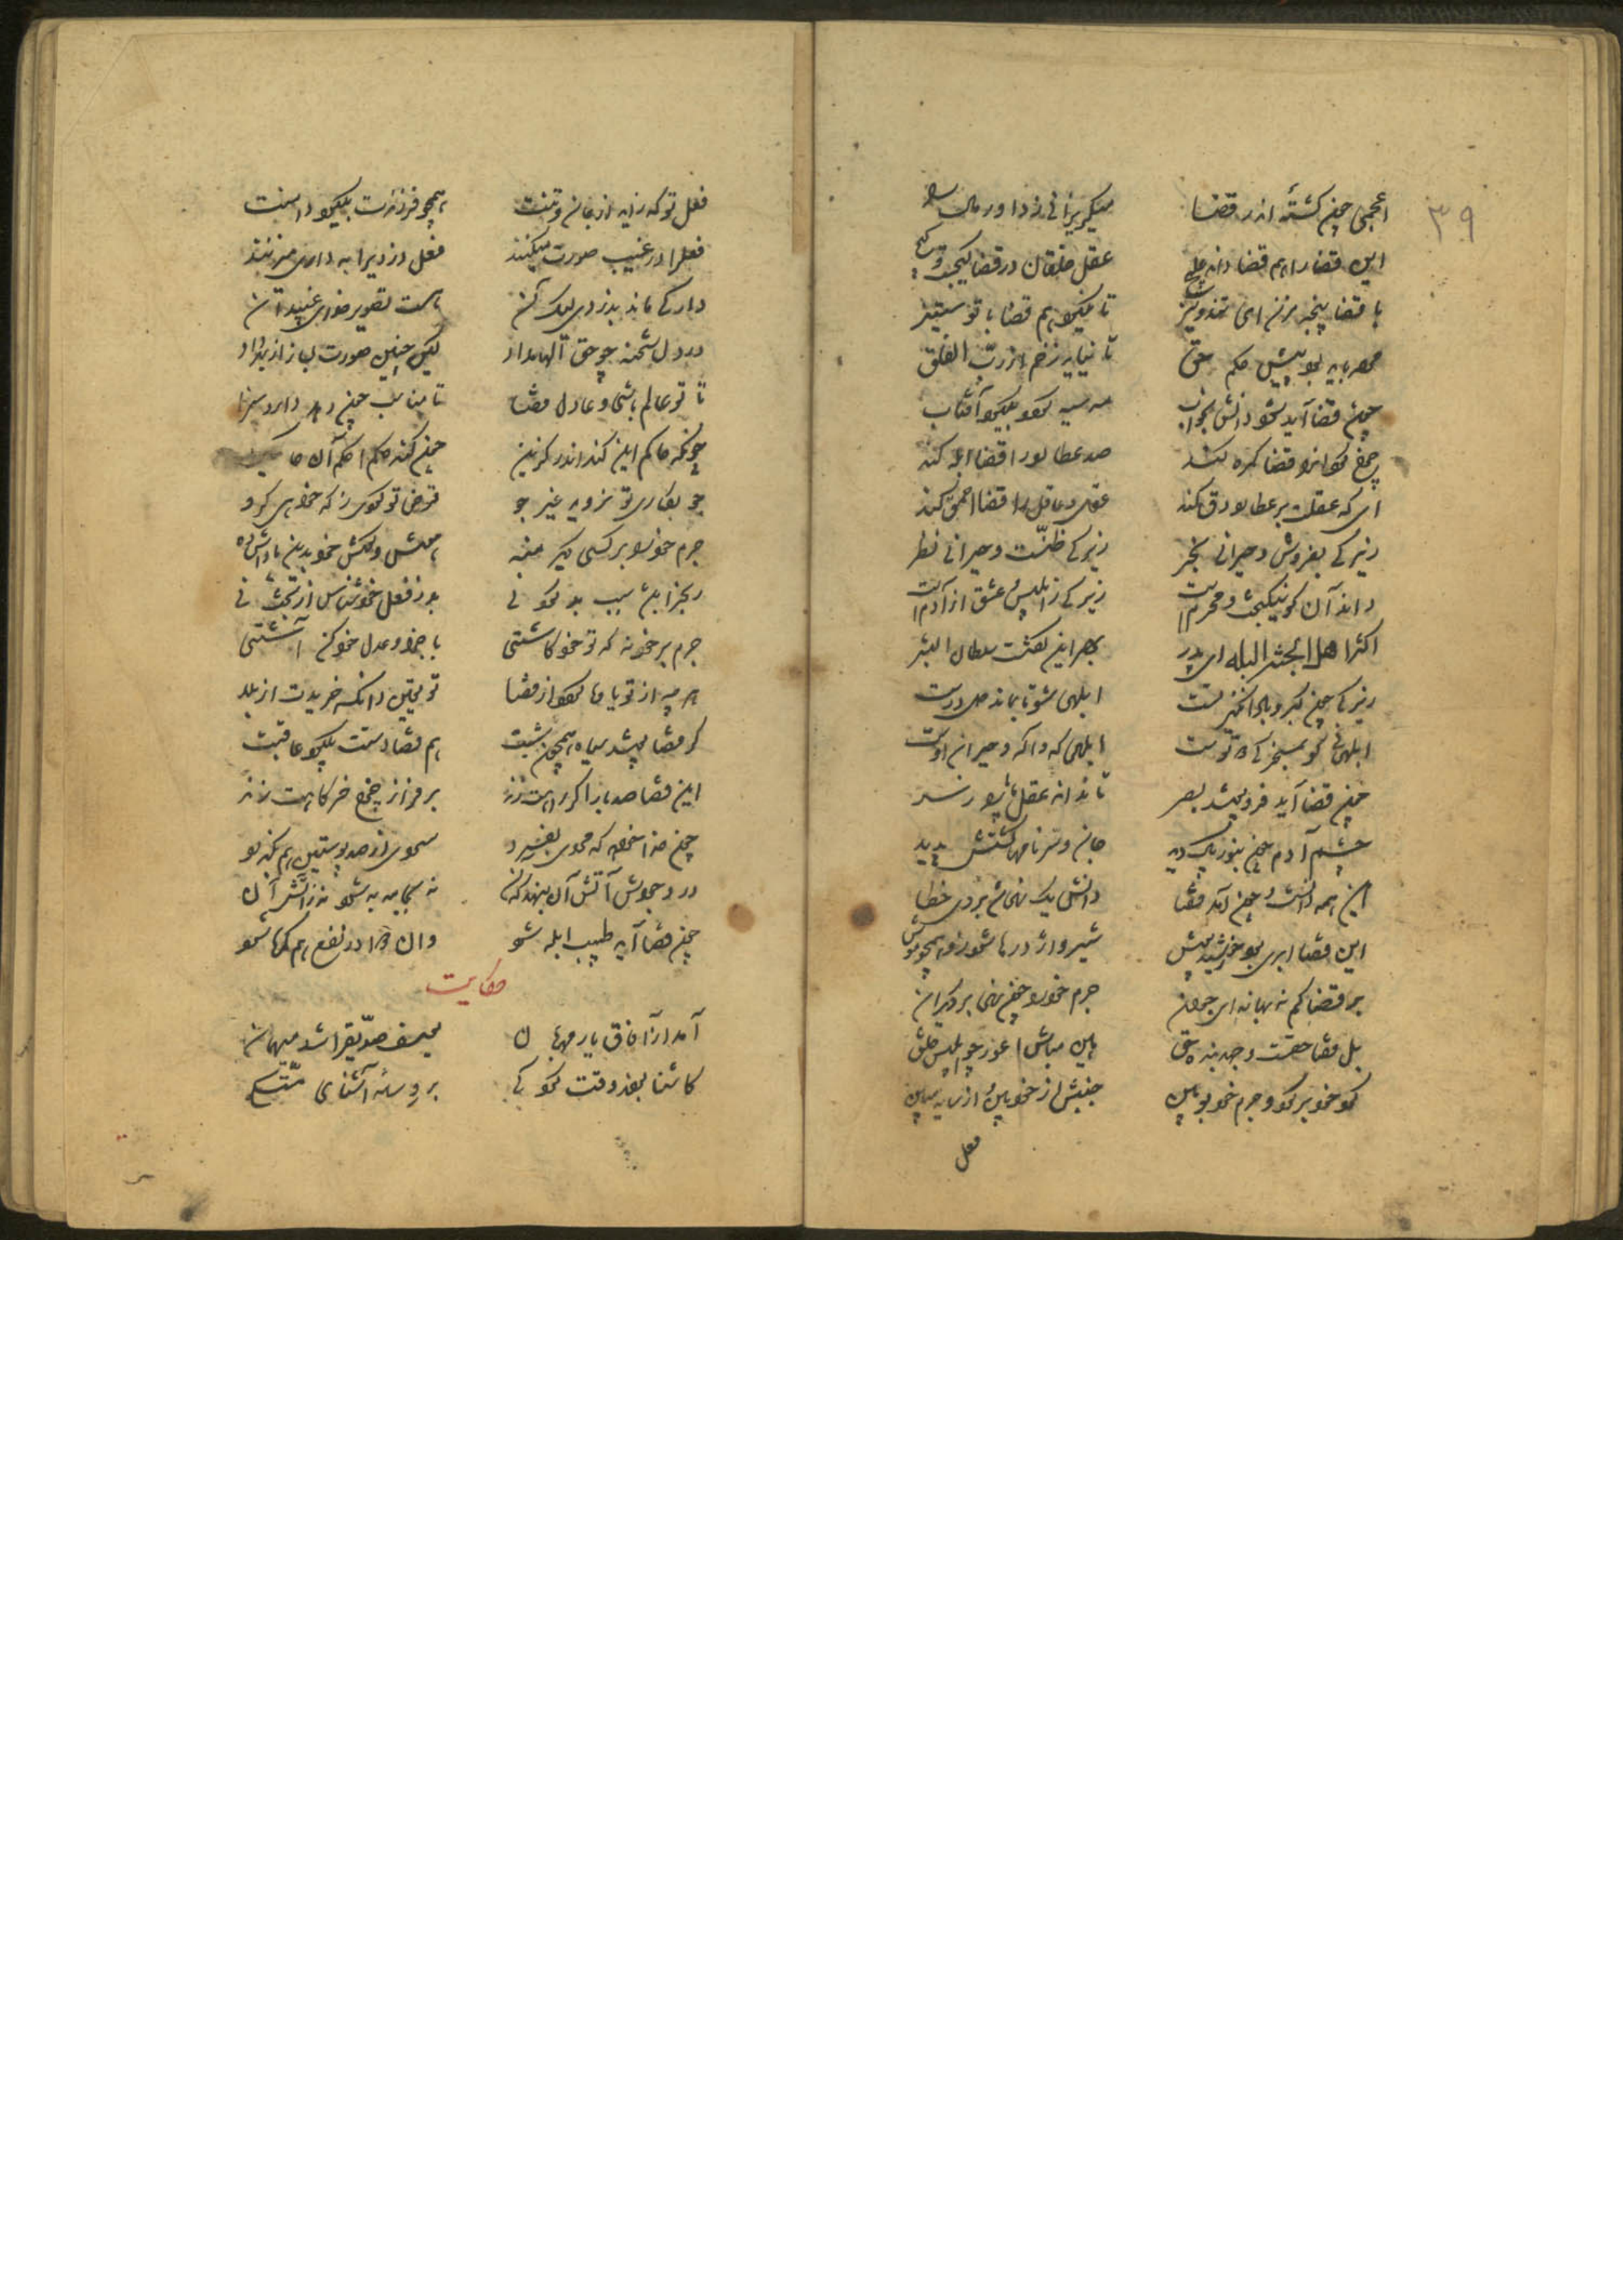 ۳۹
اعجمی چون کشتهٔ اندر قضا میگریزانی ز داور مال را
این قضا را هم قضا داند علاج عقل خلقان در قضا کیجست و کاج
با قضا پنجه مزن ای تند و تیز تا نگیرد هم قضا با تو ستیز
مرده باید بود پیش حکم حق تا نیاید زخم از رب الفلق
چون قضا آید شود دانش بخواب مه سیه گردد بگیرد آفتاب
چرخ گردان را قضا گمره کند صد عطارد را قضا ابله کند
ای که عقلت بر عطارد دق کند عقل و عاقل را قضا احمق کند
زیرکی بفروش و حیرانی بخر زیرکی ظنست و حیرانی نظر
داند آن کو نیکبخت و محرم است زیرکی ز ابلیس و عشق از آدم است
اکثر اهل الجنه البله ای پدر بهر این گفتست سلطان البشر
زیرکی چون کبر و باد انگیز تست ابلهی شو تا بماند دل درست
ابلهی نی کو بمسخرگی دوتوست ابلهی کو واله و حیران اوست
چون قضا آید فرو پوشد بصر تا نداند عقل ما پا را ز سر
چشم آدم چون بنور پاک دید جان و سر نامها گشتش پدید
این همه دانست و چون آمد قضا دانش یک نهی شد بروی خطا
این قضا ابری بود خورشید پوش شیر و اژدرها شود زو همچو موش
بر قضا کم نه بهانه ای جوان جرم خود را چون نهی بر دیگران
بل قضا حقست و جهد بنده حق هین مباش اعور چو ابلیس خلق
گرد خود بر گرد و جرم خود ببین جنبش از خود بین و از سایه مبین
فعل
فعل تو که زاید از جان و تنت همچو فرزندت بگیرد دامنت
فعل را در غیب صورت میکنند فعل دزدی را نه داری میزنند
دار کی ماند بدزدی لیک آن هست تصویر خدای غیب دان
در دل شحنه چو حق الهام داد کین چنین صورت بساز از بهر داد
تا تو عالم باشی و عادل قضا نامناسب چون دهد داد و سزا
چونکه حاکم این کند اندر گزین چون کند حکم احکم آن حاکمین
چو بکاری جو نروید غیر جو قرض تو کردی ز که خواهی گرو
جرم خود را بر کسی دیگر منه
رنج را باشد سبب بد کردنی بد ز فعل خود شناس از بخت نی
جرم بر خود نه که تو خود کاشتی با جزا و عدل حق کن آشتی
گر قضا پوشد سیه همچون شبت هم قضا دستت بگیرد عاقبت
این قضا صد بار اگر راهت زند بر فراز چرخ خرگاهت زند
چون قضا آید طبیب ابله شود وان دوا در نفع هم گمره شود
حکایت
آمد از آفاق یار مهربان یوسف صدیق را شد میهمان
کاشنا بودند وقت کودکی بر وساده آشنایی متکی